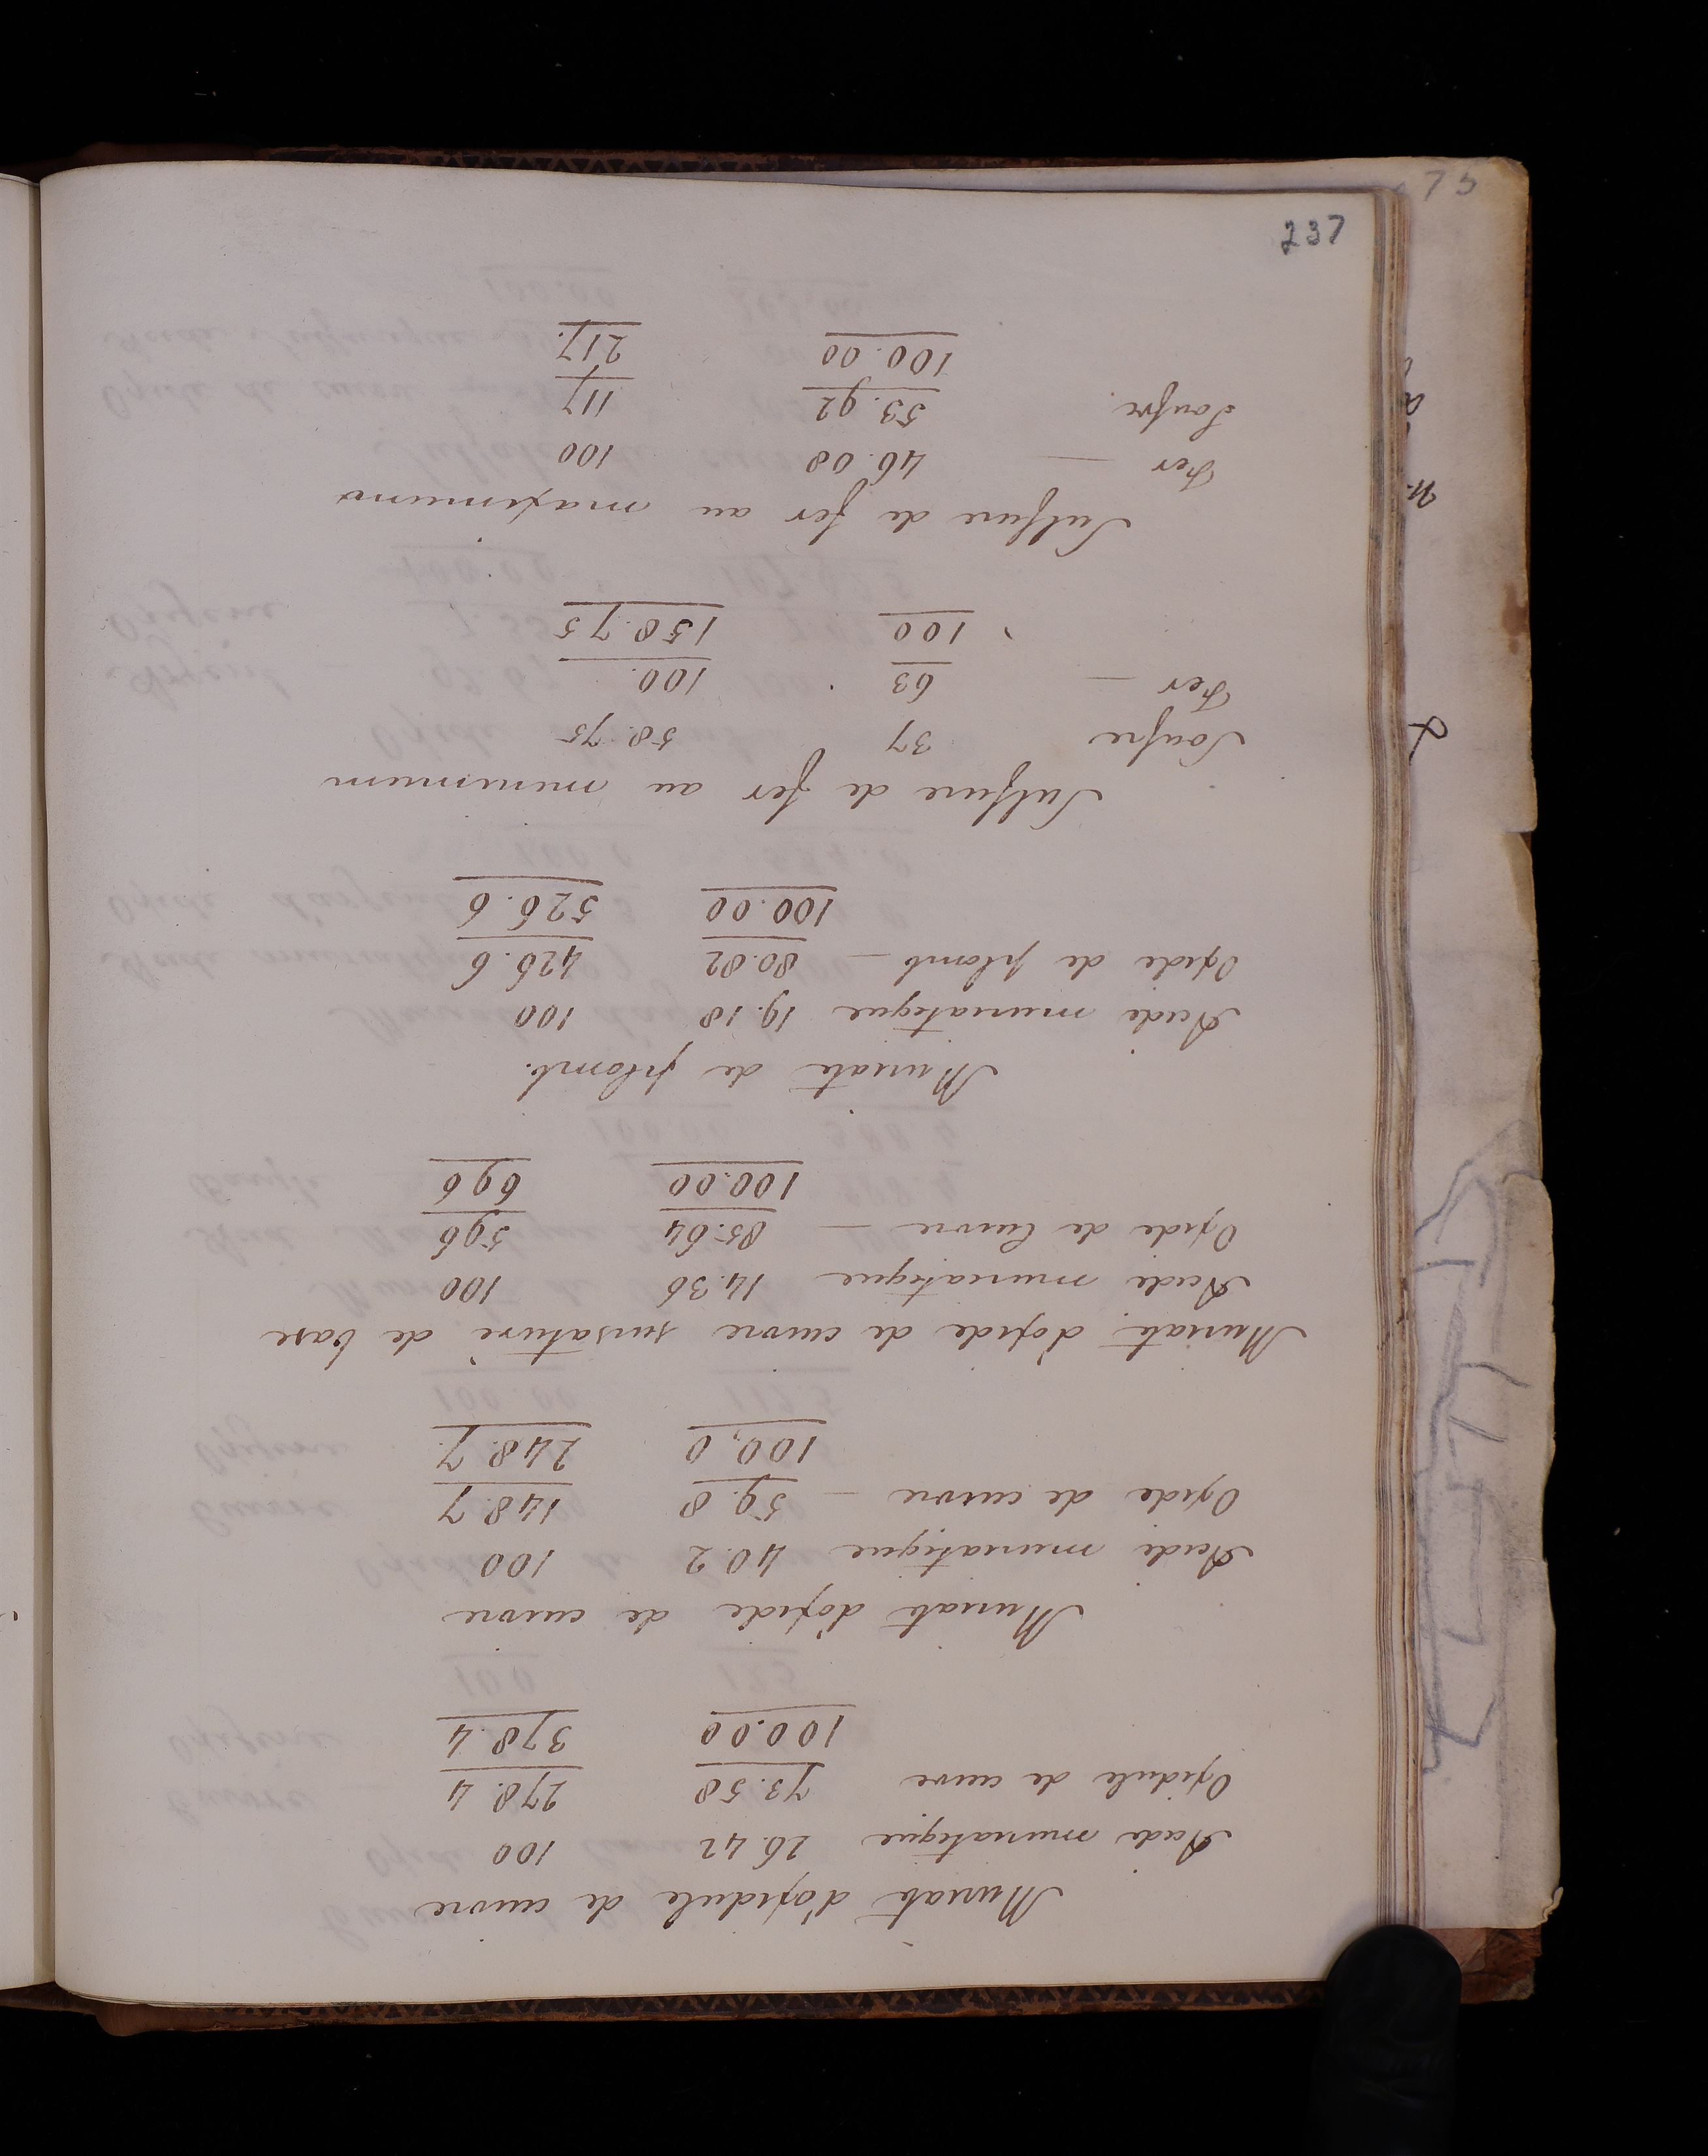 Muriate d'oxidule de cuivre
Acide muriatique 26.42 100
Oxidule de cuivre 73.58 278.4
100.00 378.4
Muriate d'oxide de cuivre
Acide muriatique 40.2 100
Oxide de cuivre — 59.8 148.7
100,0 248.7.
Muriate d'oxide de cuivre sursaturé de base
Acide muriatique 14.36 100
Oxide de Cuivre — 85.64 596
100.00 696
Muriate de plomb.
Acide muriatique 19.18 100
Oxide de plomb — 80.82 426.6
100.00 526.6
Sulfure de fer au minimum
Soufre 37 58.75
Fer — 63 100.
100 158.75
Sulfure de fer au maximum
Fer — 46.08 100
Soufre. 53.92 117
100.00 217.
237
75